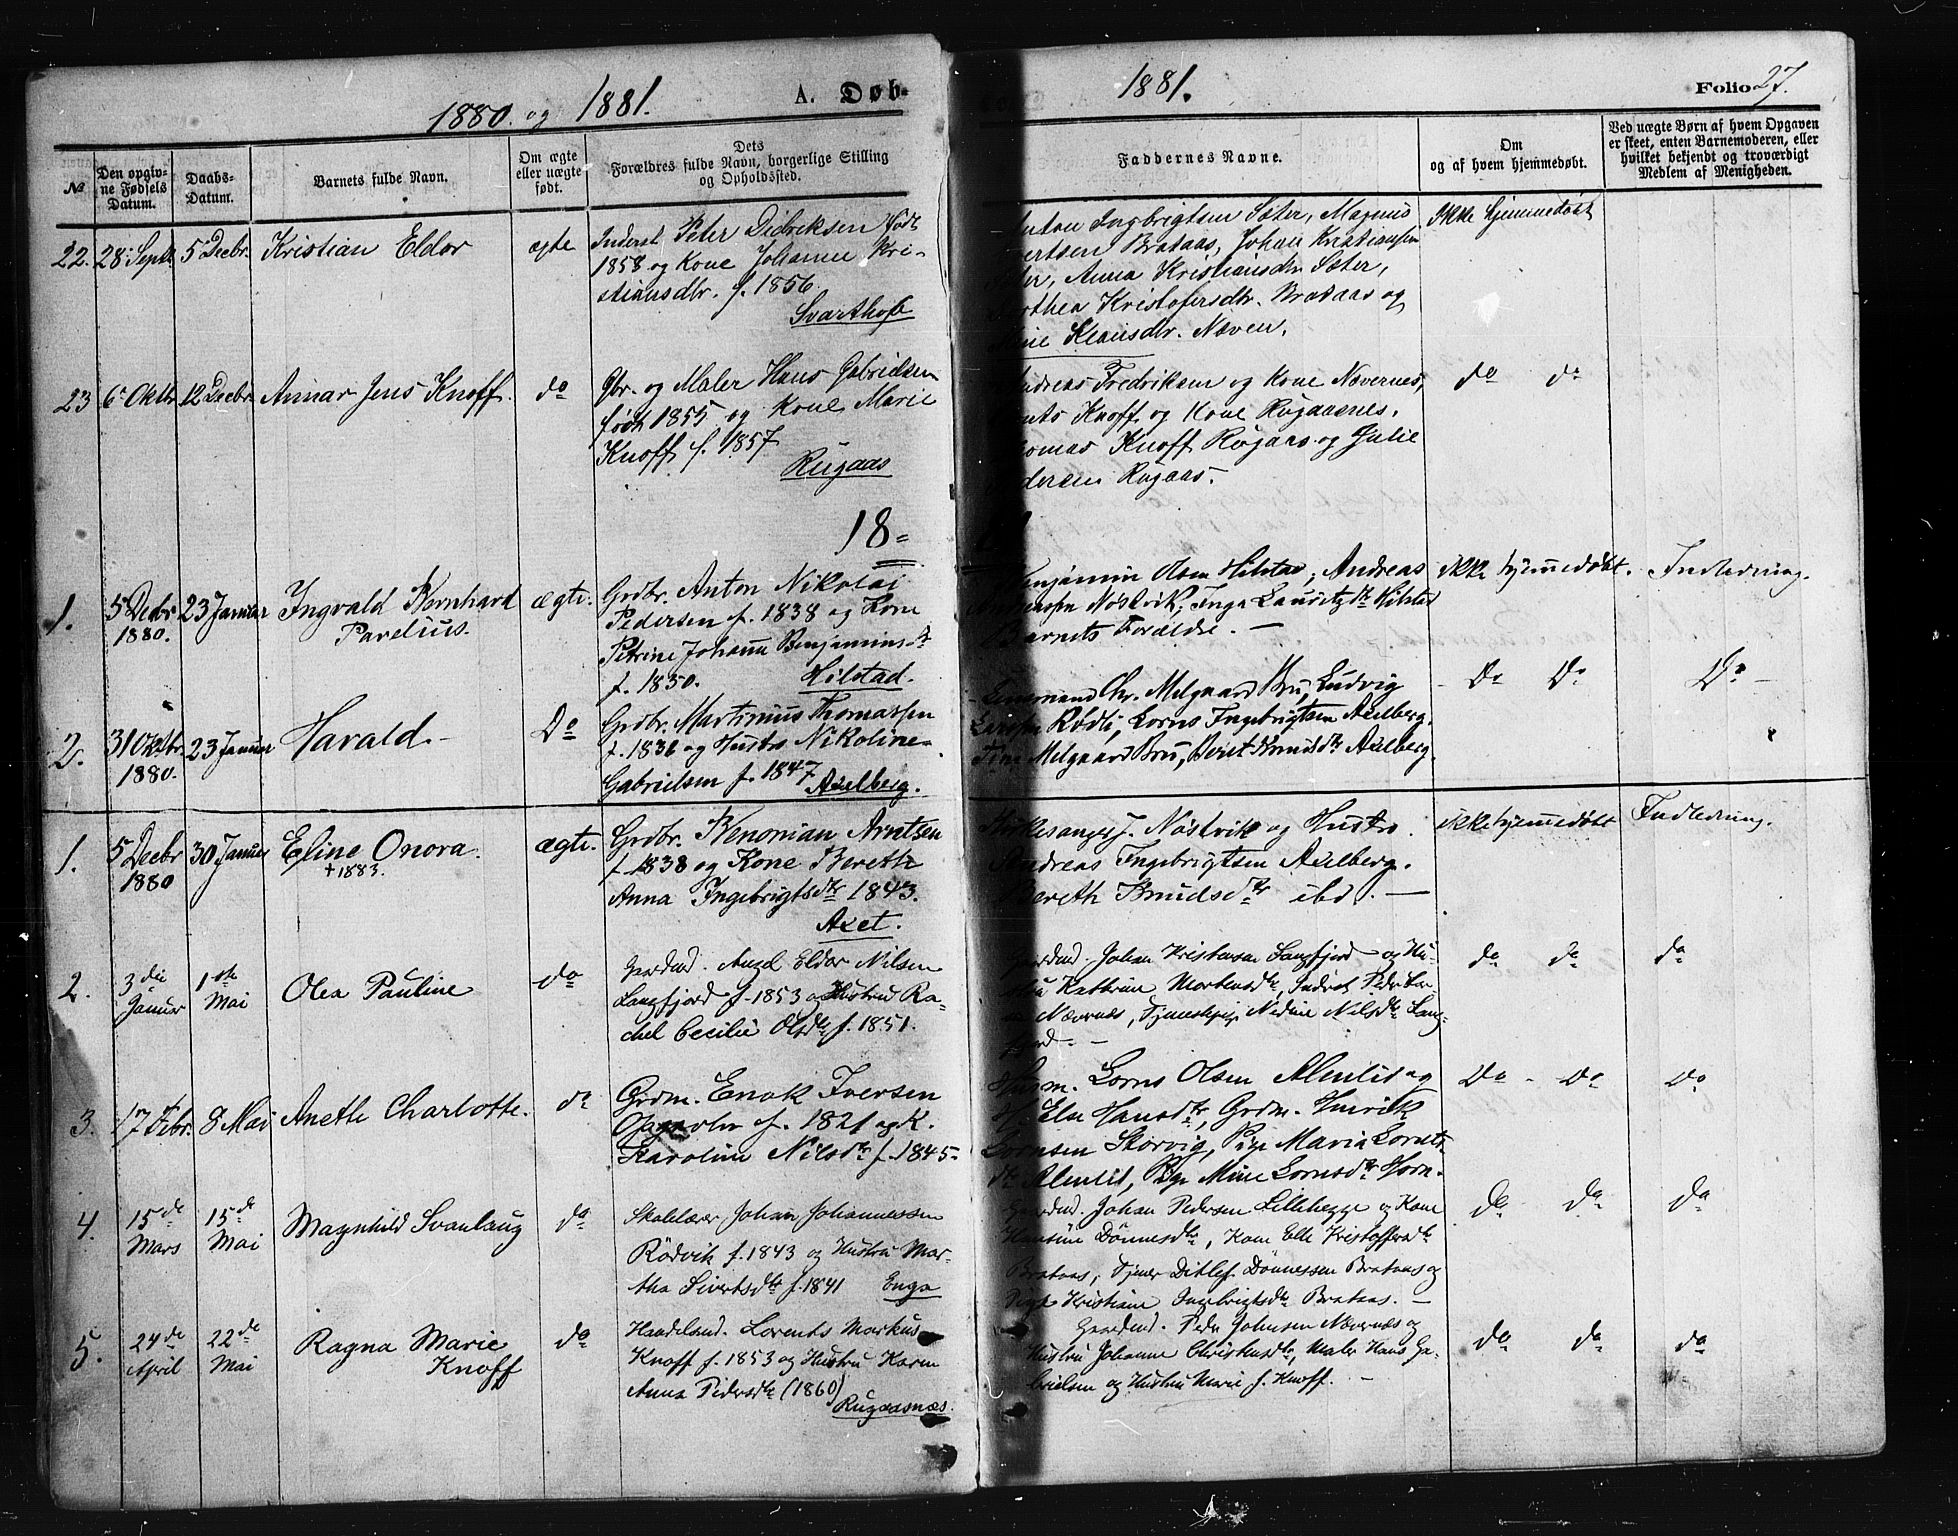 1880 og 1881.
A. Døb-
1881.
Folio 27.
No
Den opgiv-
ne Fødsels
Datum.
Daabs-
Datum.
Barnets fulde Navn.
Om ægte
eller uægte
født.
Dets
Forældres fulde Navn, borgerlige Stilling
og Opholdssted.
Faddernes Navne.
Om
og af hvem hjemmedøbt.
Ved uægte Børn af hvem Opgaven
er skeet, enten Barnemoderen, eller
hvilket bekjendt og troværdigt
Medlem af Menigheden.
22. 28 Septr 5 Decbr. Kristian Eldor ægte
Inderst Peter Didriksen født
1858 og Kone Johanne Kri-
stiansdtr. f. 1856.
Ingbrigtsen Sæter, Magnus
Brataas, Johan Kristiansen
Anna Kristiansdtr Sæter,
Kristofersdtr. Brataas og
Klausdtr. Næven.
Ikke hjemmedøbt
23 6 Oktbr 12 Decbr Annar Jens Knoff. do
Gbr. og Maler Hans Gabrielsen
født 1855 og Kone Marie
Knoff f. 1857
Rugaas
Fredriksen og Kone Nævernes,
Knoff og Kone Rugaasnes.
Knoff Rugaas og Julie
Rugaas.
do do
18=
1. 5 Decbr 23 Januar Ingvald Bernhard ægte.
1880.
Pavelius.
Grdbr. Anton Nikolai
Pedersen f. 1838 og Kone
Petrine Johanna Benjaminsdtr
f. 1850. Hilstad.
Benjamin Olsen Hilstad, Andreas
Nøstvik, Inga Lauritzdtr Hilstad
Barnets Forældre. —
ikke hjemmedøbt. Indledning.
2. 31 Oktbr. 23 Januar Harald. — Do
1880.
Grdbr. Martinius Thomassen
f. 1831 og Hustro Nikoline
Gabrielsen f. 1847 Axelberg.
Lensmand Chr. Melgaard Bru, Ludvig
Lorns Ingebrigtsen Axelberg.
Melgaard Bru, Berit Knudsdtr Axelberg.
Do Do Do —
1. 5 Decbr 30 Januar Eline Onora. ægte.
1880
+ 1883.
Grdbr. Benonian Arntsen
f. 1838 og Kone Bereth
Anna Ingebrigtsdtr 1843.
Axet.
Kirkesanger J. Nøstvik og Hustro.
Andreas Ingebrigtsen Axelberg.
Bereth Knudsdtr ibd. —
ikke hjemmedøbt Indledning.
2. 3die 1ste Olea Pauline do
Januar Mai
Gaardmd. Axel Eldor Nilsen
Langfjord f. 1853 og Hustru Ra-
chel Cecilie Olsdtr f. 1851.
Gaardmd. Johan Kristensen Langfjord og Hu-
stru Kathrine Mortensdtr, Inderst Peder
Nævernæs, Tjenestepige Nedine Nilsdtr Lang-
fjord. —
do do do
3. 17 Febr. 8 Mai Anette Charlotte. do
Grdm. Enok Iversen
f. 1821 og K.
Karoline Nilsdtr f. 1845.
Husm. Lorns Olsen Almlid og
Else Hansdtr, Grdm. Henrik
Lornsen Skorvig, Pige Maria Lornts
dtr Almlid, Pige Mine Lornsdtr Horn.
Do Do Do
4. 15de 15de Magnhild Svanlaug do
Mars Mai
Skolelærer Johan Johannessen
Rödvik f. 1843 og Hustru Mar-
tha Sivertsdtr f. 1841 Enga
Gaardmd. Johan Pedersen Lillehegge og Kone
Hansine Dönnesdtr, Kone Elle Kristoffersdtr
Brataas, Tjener Ditlef Dönnessen Brataas og
Pige Kristiane Ingebrigtsdtr Brataas. —
do do do
5. 24de 22de Ragna Marie do
April Mai Knoff
Handelsmd. Lorents Markus
Knoff f. 1853 og Hustru Karen
Anna Pedersdtr (1860)
Rugaasnæs.
Gaardmd. Peder Johnsen Nævernæs og
Hustru Johanne Christensdtr, Maler Hans Ga-
brielsen og Hustru Marie f. Knoff. —
do do do